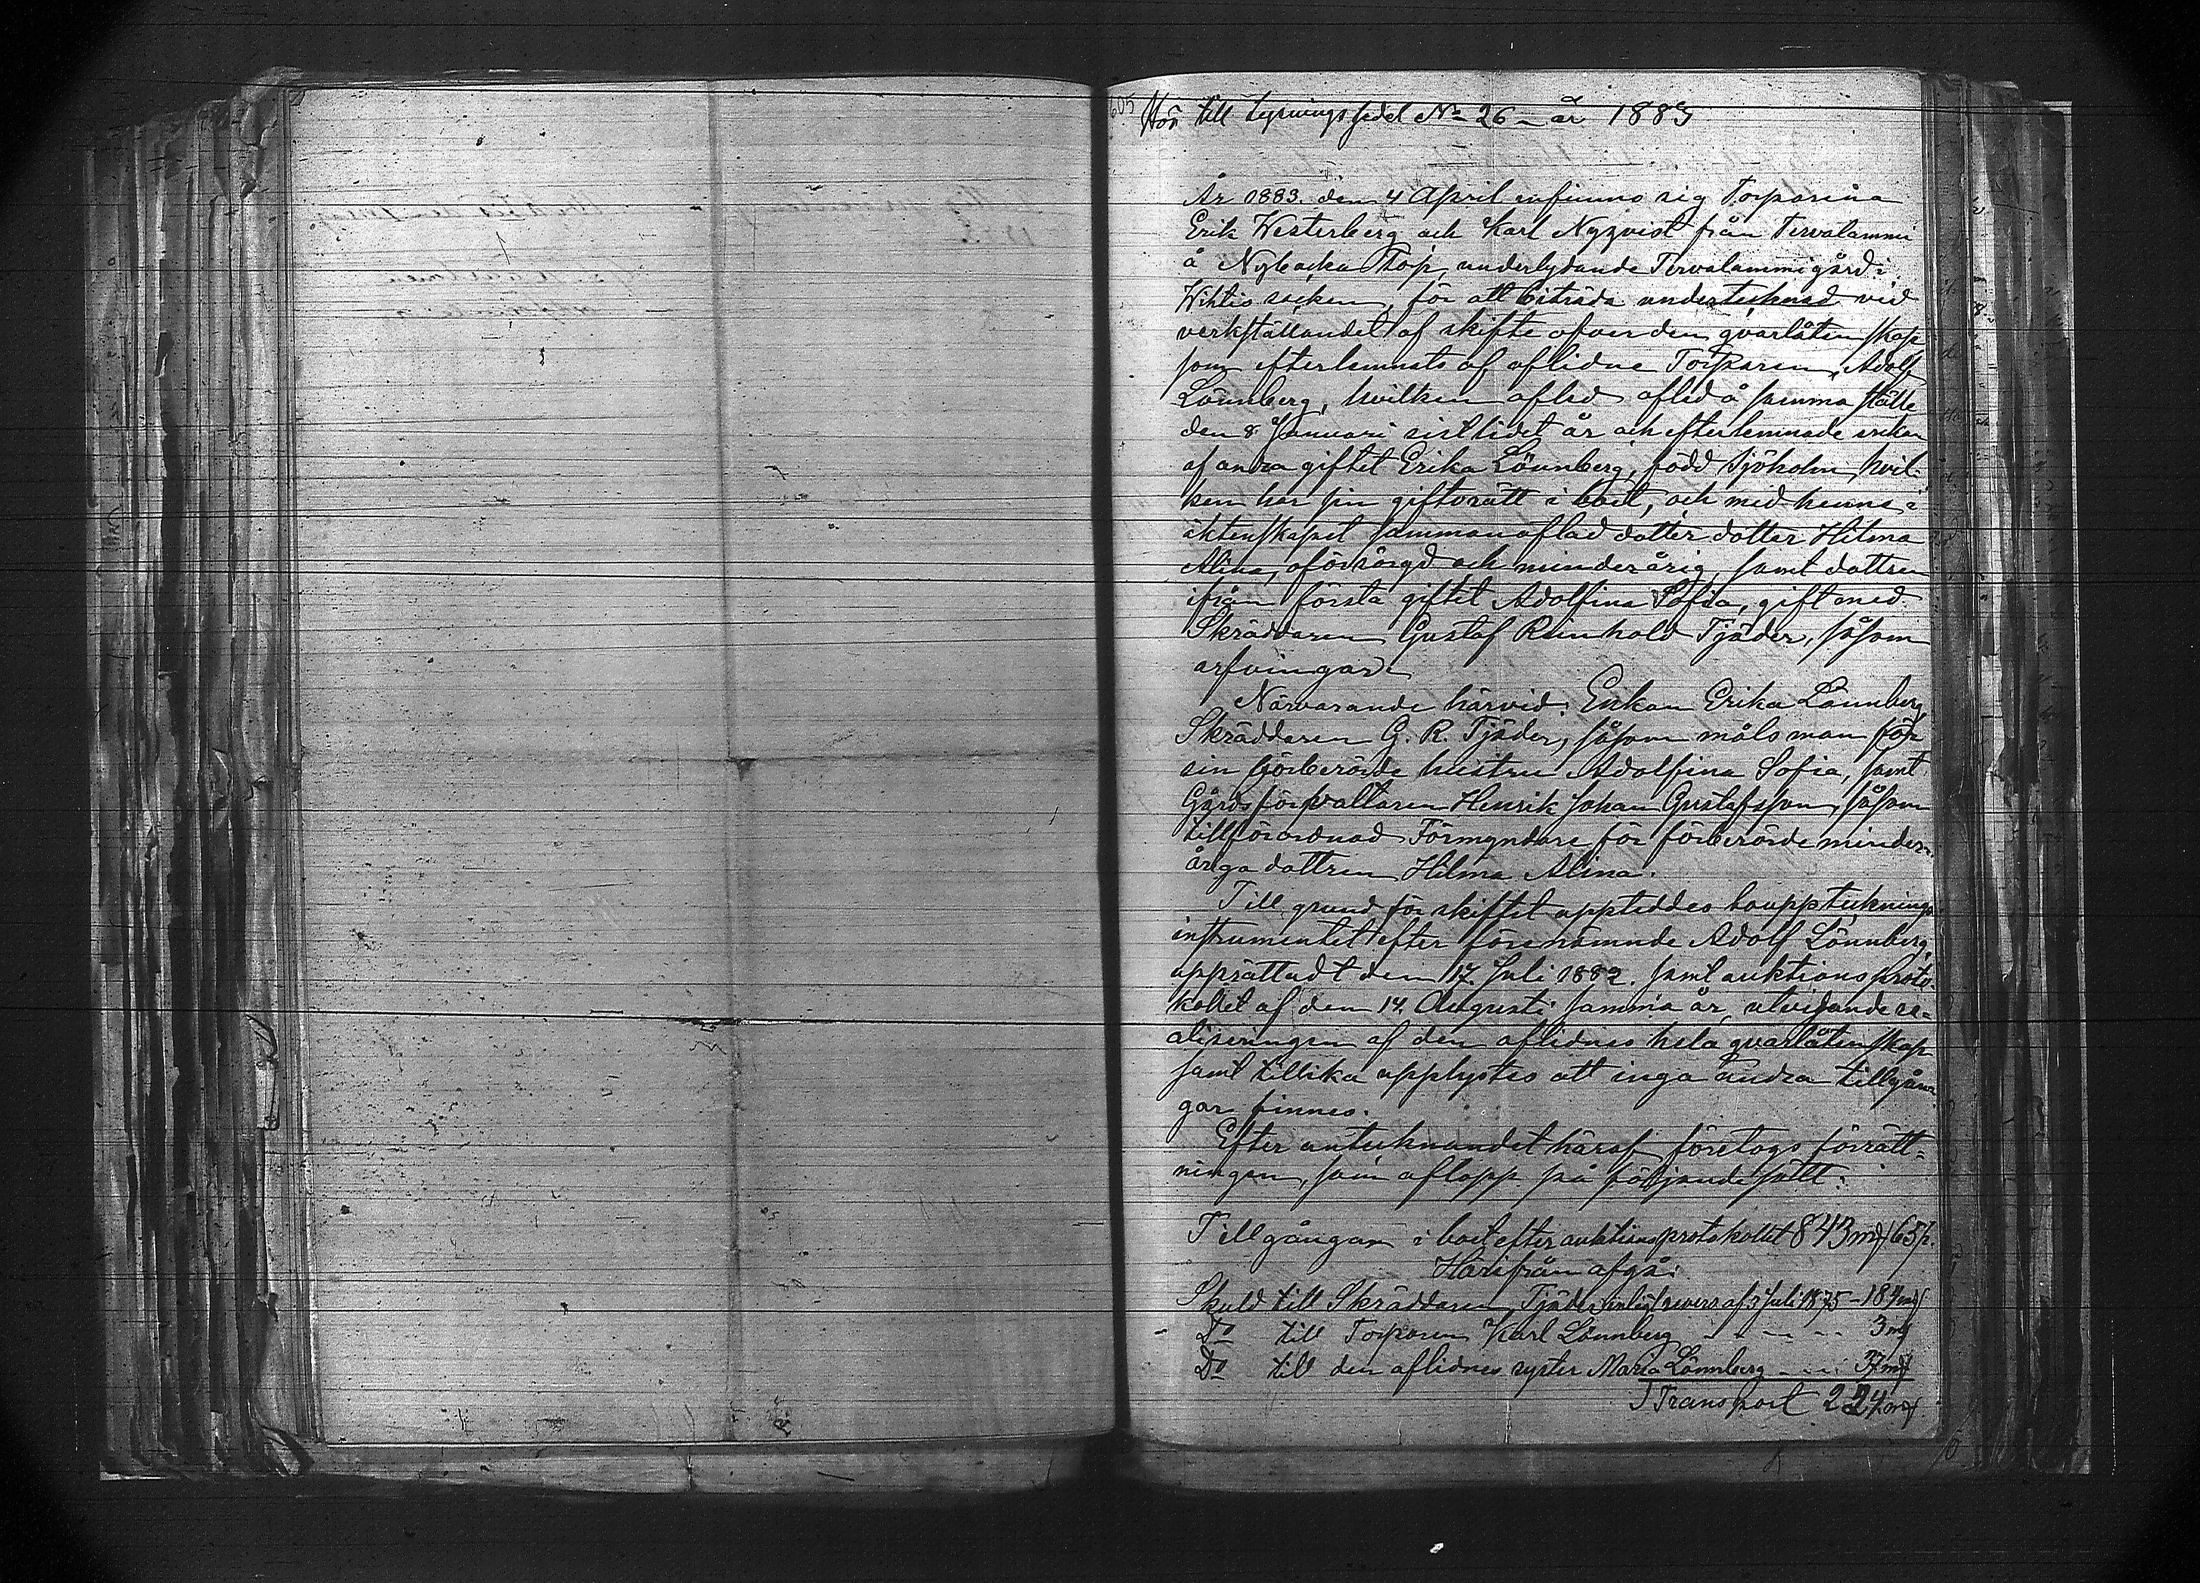 605
Hör till lysningssedel No 26 - år 1883
År 1883. den 4 April infunno sig Torparena
Erik Westerberg och Karl Nyqvist från Tervalammi
å Nybacka Torp, underlydande Tervalammi gård i
Wihtis socken, för att biträda undertecknad vid
verkställandet af skifte öfver den qvarlåtenskap
som efterlemnats af aflidne Torparen, Adolf
Lönnberg, hvilken afled afled å samma ställe
den 8 Januari sistlidet år och efterlemnade enkan
af andra giftet Erika Lönnberg, född Sjöholm, hvil-
ken har sin giftorätt i boet, och med henne i
äktenskapet sammanaflad dotter dotter Hilma
Alina, oförsörgd och minderårig, samt dottren
ifrån första giftet Adolfina Sofia, gift med
Skräddaren Gustaf Reinhold Tjäder, såsom
arfvingar.
Närvarande härvid: Enkan Erika Lönnberg,
Skräddaren G. R. Tjäder, såsom målsman för
sin förberörde hustru Adolfina Sofia, samt
Gårdsförvaltaren Henrik Johan Gustafsson, såsom
tillförordnad Förmyndare för förberörde minder-
åriga dottren Hilma Alina.
Till grund för skiftet uppteddes bouppteknings
instrumentet efter förenämnde Adolf Lönnberg,
upprättadt den 17. Juli 1882. samt auktions proto-
kollet af den 14. Augusti samma år, utvisande re-
aliseringen af den aflidnes hela qvarlåtenskap
samt tillika upplystes att inga andra tillgån-
gar finnes.
Efter antecknandet häraf företogs förrätt-
ningen, som aflopp på följande sätt:
Tillgångar i boet efter auktionsprotokollet 843 mk 65 p.
Härifrån afgå:
Skuld till Skräddaren Tjäder enligt revers af 3 Juli 1875 - 184 mk
Do till Torparen Karl Lönnberg - - - - 3 mk
Do till den aflidnes syster Maria Lönnberg - - - 37 mk
Transport 224 mk